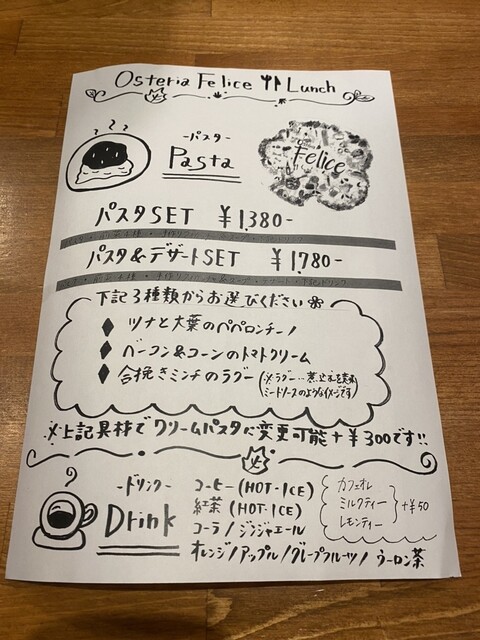 Osteria Felice Lunch
-パスタ-
Pasta
Felice
パスタSET ¥1,380-
パスタ&デザートSET ¥1,780-
下記3種類からお選びください
ツナと大葉のペペロンチーノ
ベーコン&コーンのトマトクリーム
合挽きミンチのラグー(※ラグー…煮込む
ミートソースのようなイメージです)
※上記具材でクリームパスタに変更可能+¥300です!!
-ドリンク-
Drink
コーヒー(HOT・ICE)
紅茶(HOT・ICE)
コーラ/ジンジャエール
オレンジ/アップル/グレープフルーツ/ウーロン茶
カフェオレ
ミルクティー
レモンティー
+¥50